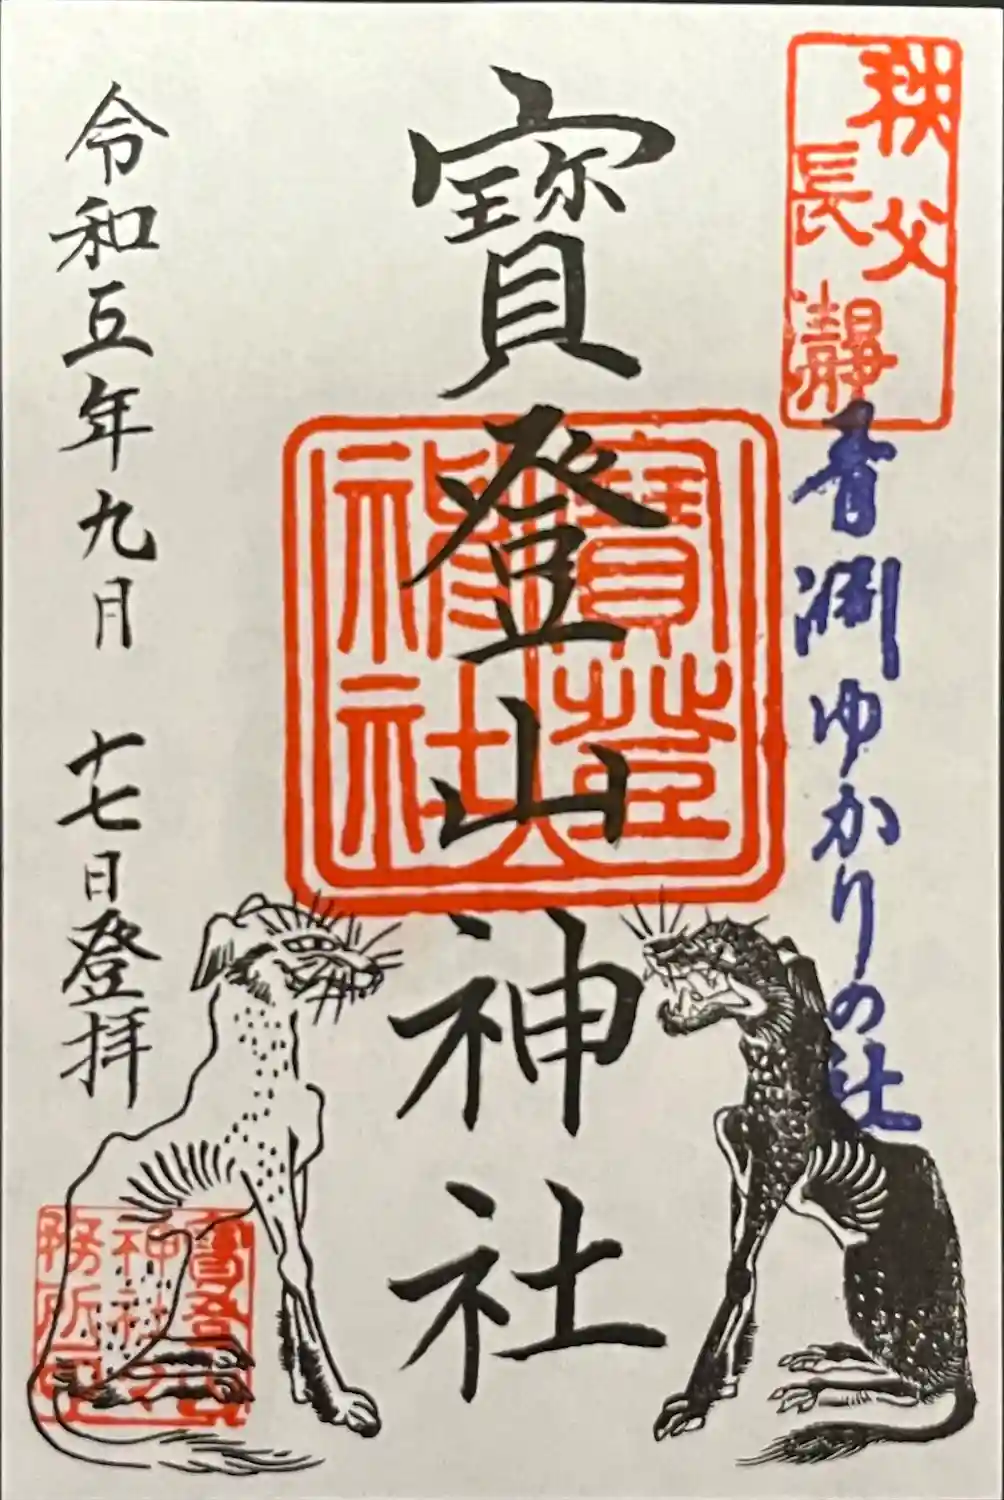 秩父
長瀞
青淵ゆかりの社
寳登山神社
寳登
神社
令和五年九月 十七日登拝
神社
務所